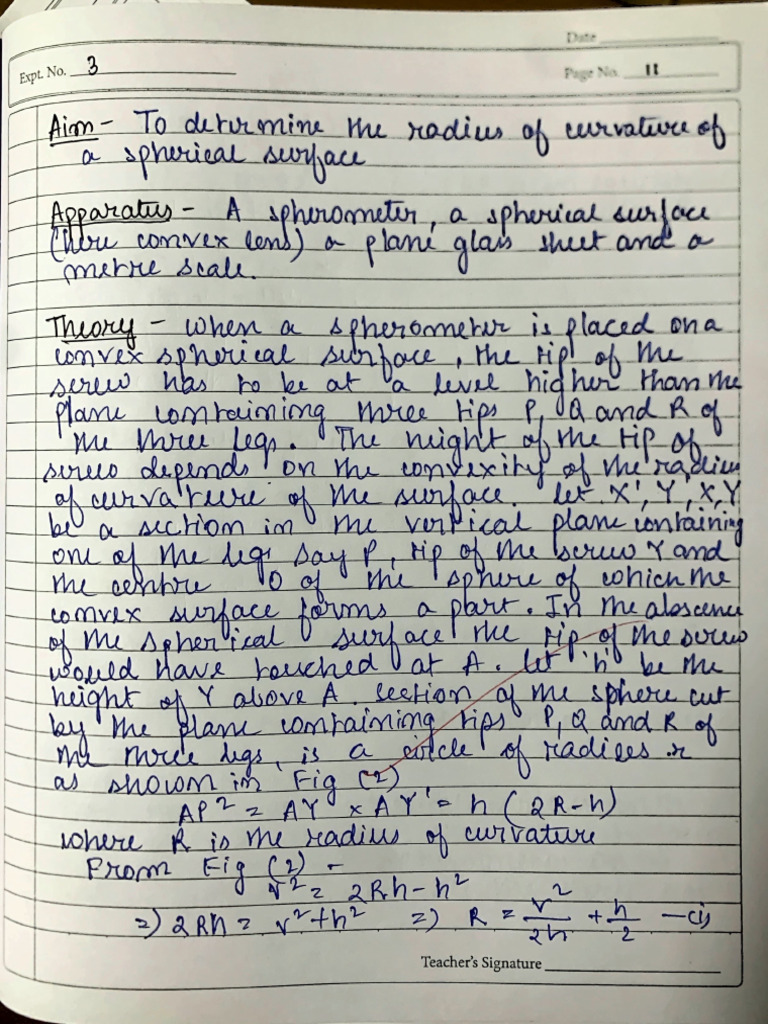 Date
Expt. No. 3
Page No. 11
Aim - To determine the radius of curvature of
a spherical surface
Apparatus - A spherometer, a spherical surface
(here convex lens) a plane glass sheet and a
metre scale.
Theory - when a spherometer is placed on a
convex spherical surface, the tip of the
screw has to be at a level higher than the
plane containing three tips P, Q and R of
the three legs. The height of the tip of
screw depends on the convexity of the radius
of curvature of the surface. let X', Y, X, Y
be a section in the vertical plane containing
one of the legs say P, tip of the screw Y and
the centre O of the sphere of which the
convex surface forms a part. In the abscence
of the spherical surface the tip of the screw
would have touched at A. let 'h' be the
height of Y above A. section of the sphere cut
by the plane containing tips P, Q and R of
the three legs, is a circle of radius r
as shown in Fig (2)
AP² = AY × AY' = h (2R-h)
where R is the radius of curvature
From Fig (2) -
r² = 2Rh - h²
=> 2Rh = r² + h² => R = r²/2h + h/2 — (i)
Teacher's Signature